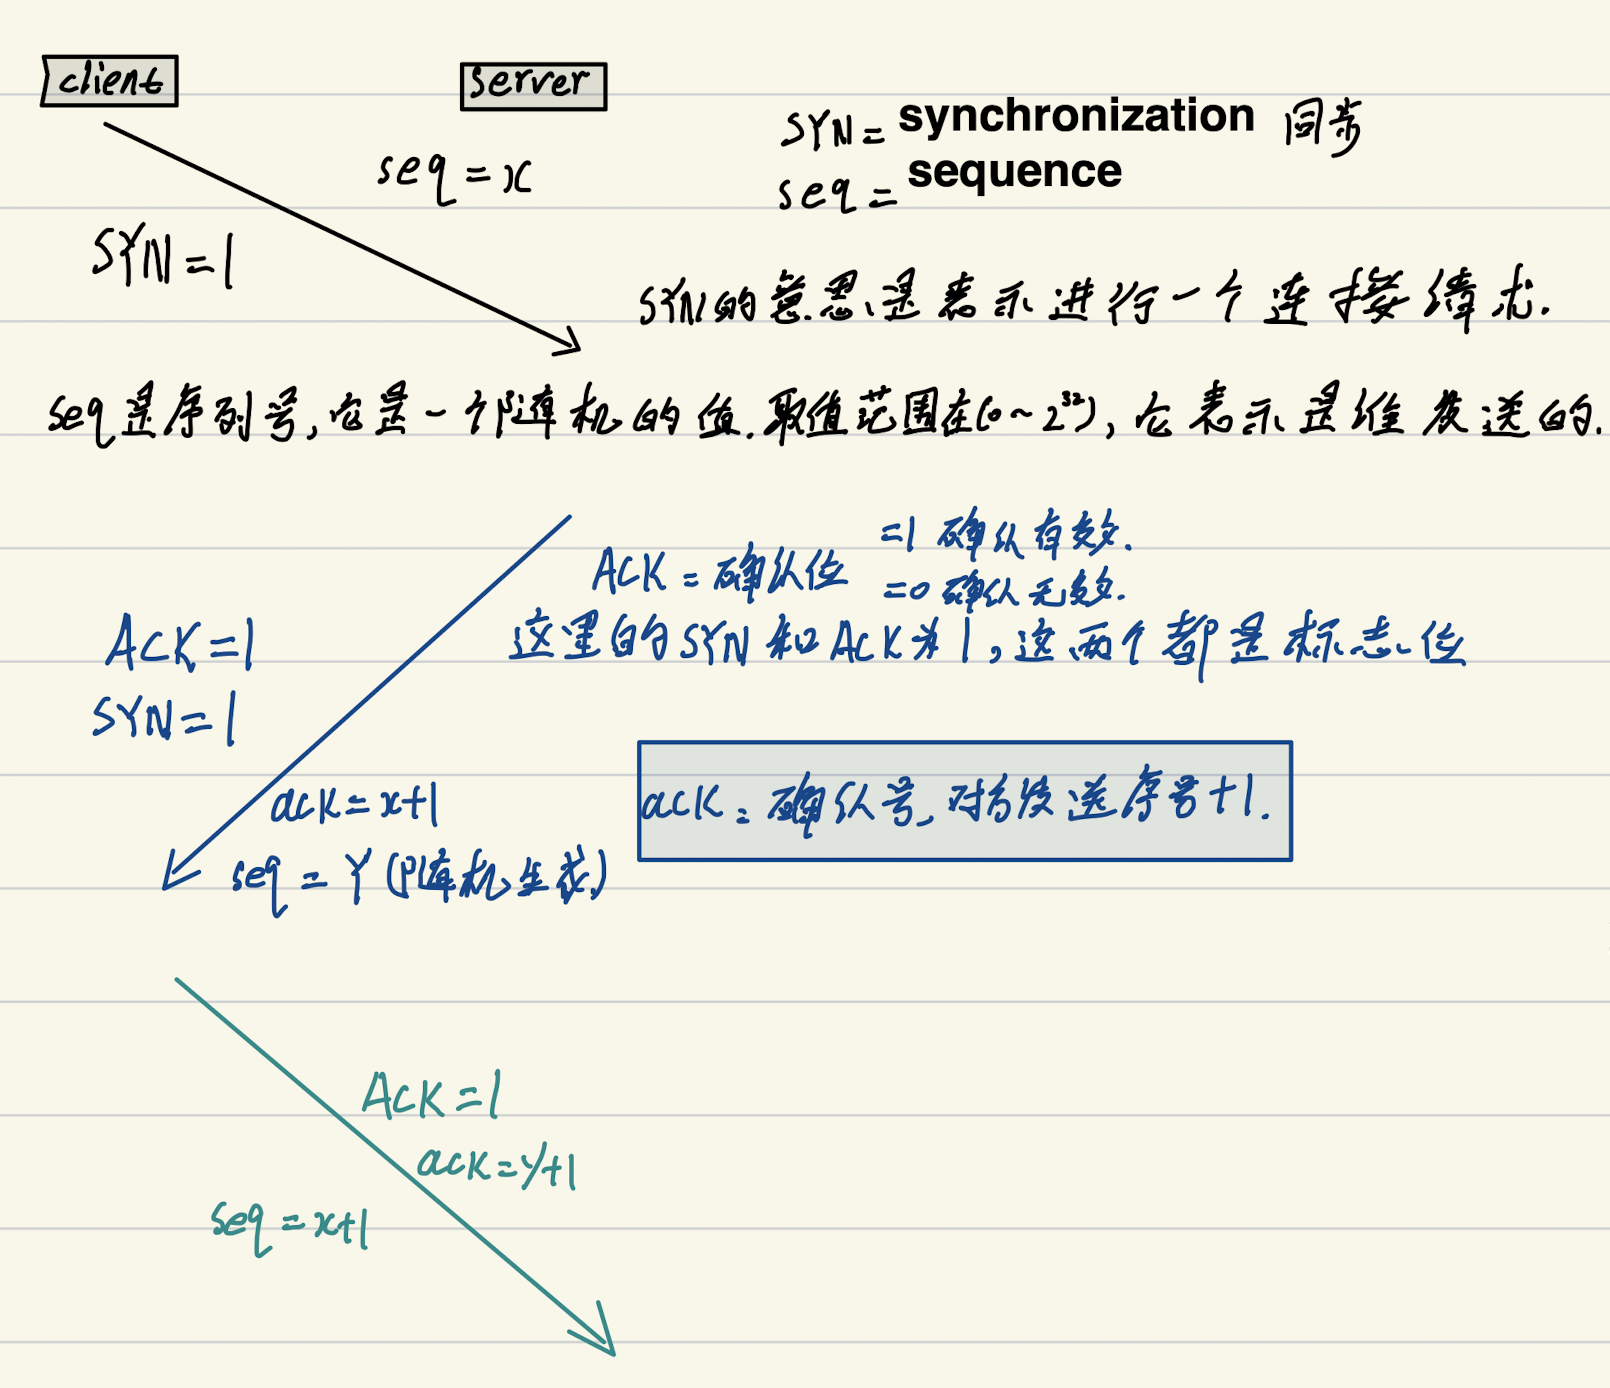 client
server
SYN = synchronization 同步
seq = sequence
seq = x
SYN = 1
SYN的意思是表示进行一个连接请求.
seq是序列号,它是一个随机的值.取值范围在(0~2³²),它表示是谁发送的.
ACK = 确认位
=1 确认有效.
=0 确认无效.
这里的SYN和ACK为1,这两个都是标志位
ACK = 1
SYN = 1
ack = x+1
seq = Y (随机生成)
ack = 确认号,对方发送序号+1.
ACK = 1
ack = y+1
seq = x+1